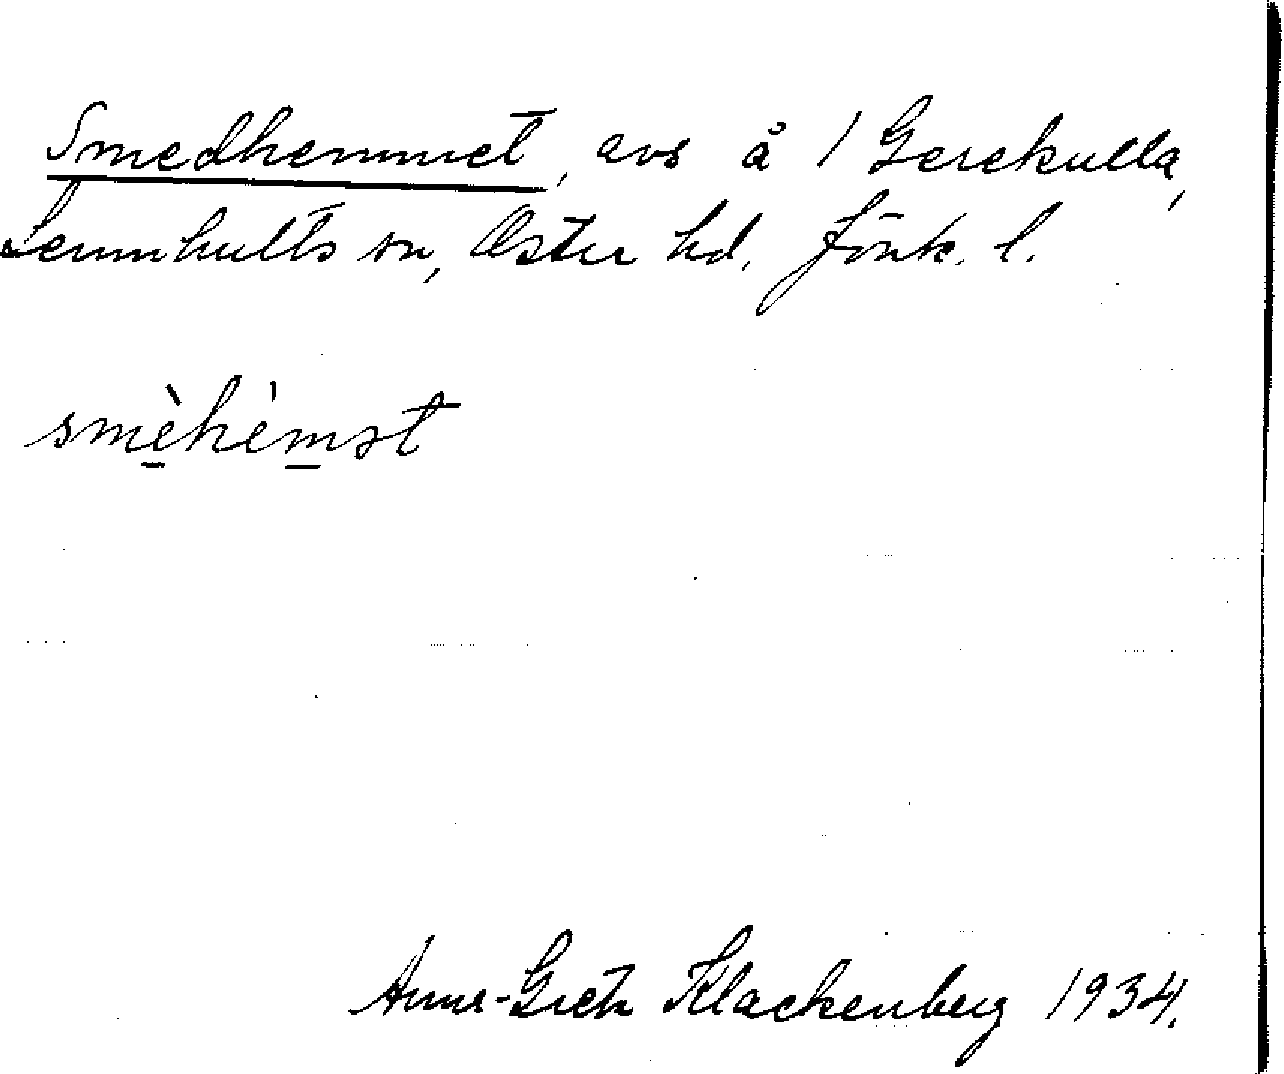 Smedhemmet, avs å 1 Gerekulla,
Lemnhults sn, Östra hd. Jönk. l.
smèhémət
Anna-Greta Klackenberg 1934.